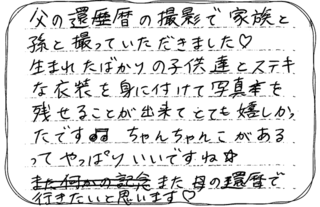 父の還暦の撮影で家族と
孫と撮っていただきました♡
生まれたばかりの子供達とステキ
な衣装を身に付けて写真を
残せることが出来てとても嬉しか
ったです♫ ちゃんちゃんこがある
って やっぱり いいですね☆
また母の還暦で
行きたいと思います♡